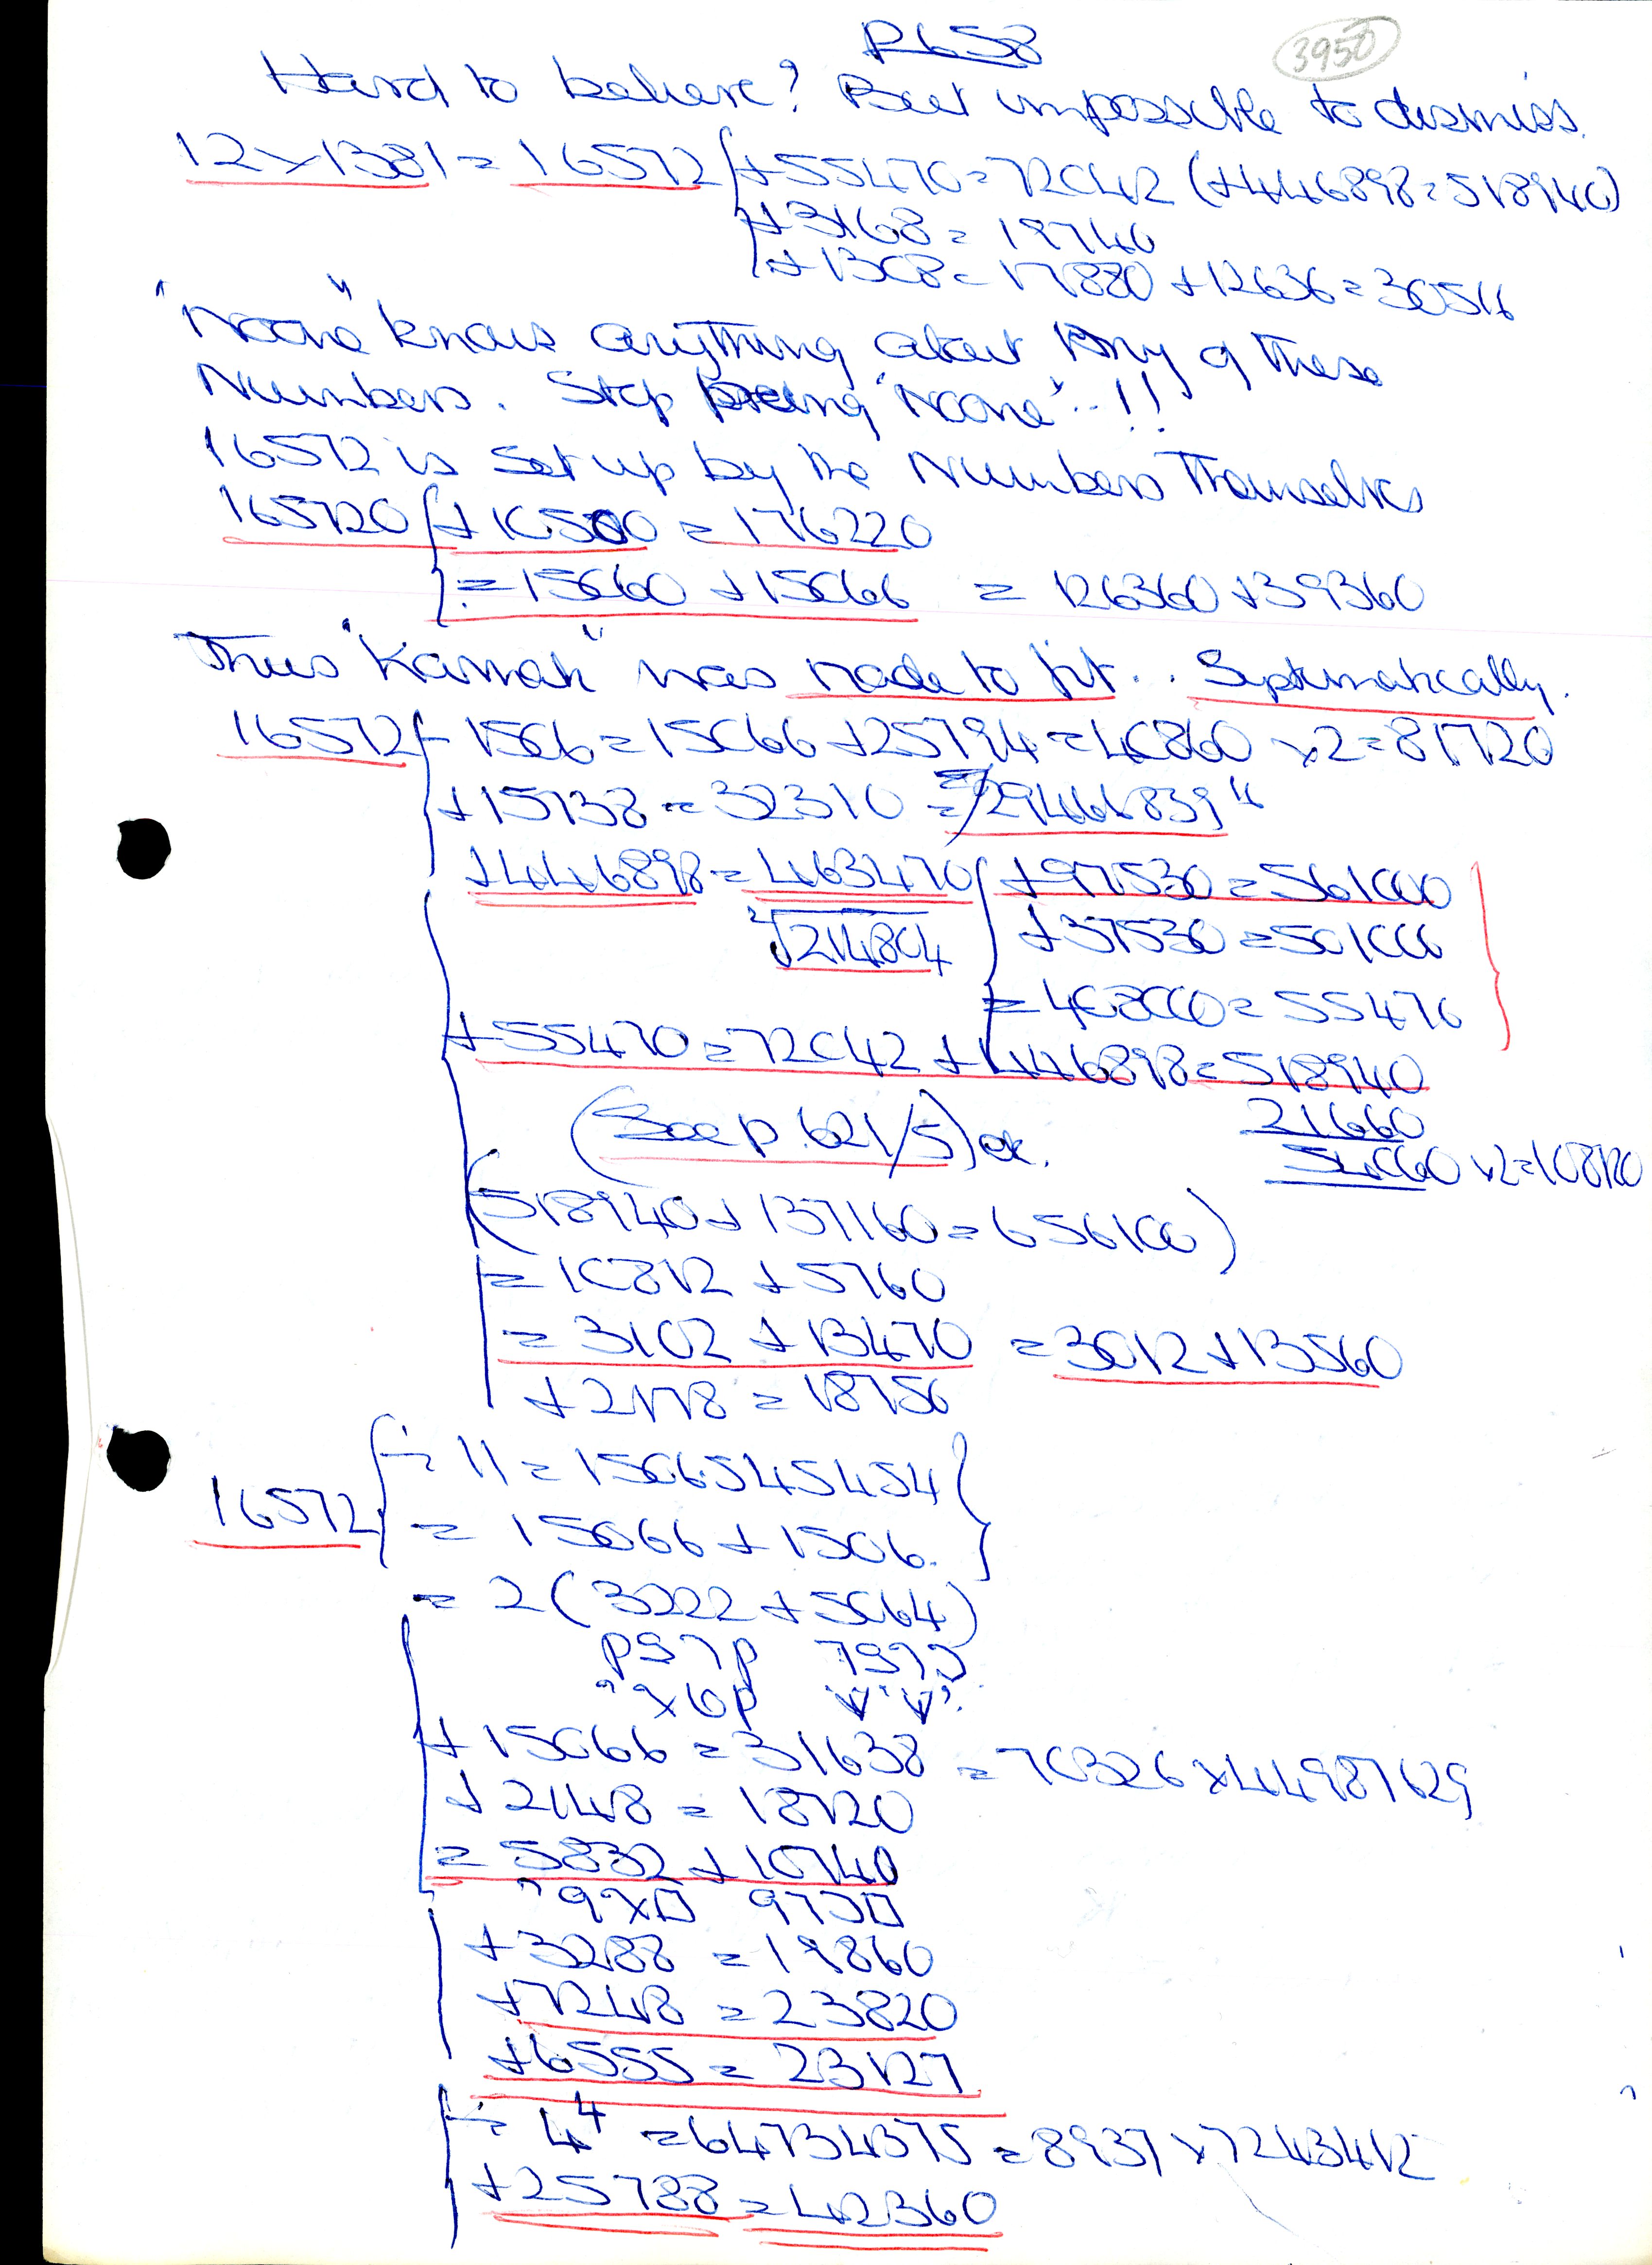 P658
3950
Hard to believe? But impossible to dismiss.
12 × 1381 = 16572 { + 55470 = 72042 (+ 446898 = 518940)
+ 3168 = 19740
+ 1308 = 17880 + 12636 = 30516
"Noone" knows anything about Any of these
Numbers. Stop being "Noone"..!!
16572 is set up by the Numbers Themselves
165720 { + 10500 = 176220
= 15060 + 15066 = 126360 + 39360
Thus "Karnak" was made to fit.. Systematically.
16572 { - 1506 = 15066 + 25794 = 40860 × 2 = 81720
+ 15738 = 32310 = 29466839"
+ 446898 = 463470 { + 97530 = 561000
214804 + 37530 = 501000
= 408000 = 55470
+ 55470 = 72042 + 446898 = 518940
(See p. 621/5) etc. 21660
54060 × 2 = 108120
(518940 + 137160 = 656100)
= 10812 + 5760
= 3102 + 13470 = 3012 + 13560
+ 2178 = 18750
16572 { ÷ 11 = 1506545454 }
= 15066 + 1506.
= 2 (3222 + 5064)
+ 15066 = 31638 = 70326 × 44987629
+ 2148 = 18720
= 5832 + 10740
+ 3288 = 19860
+ 7248 = 23820
+ 6555 = 23127
÷ 4⁴ = 64734375 = 8937 × 7243412
+ 25788 = 42360